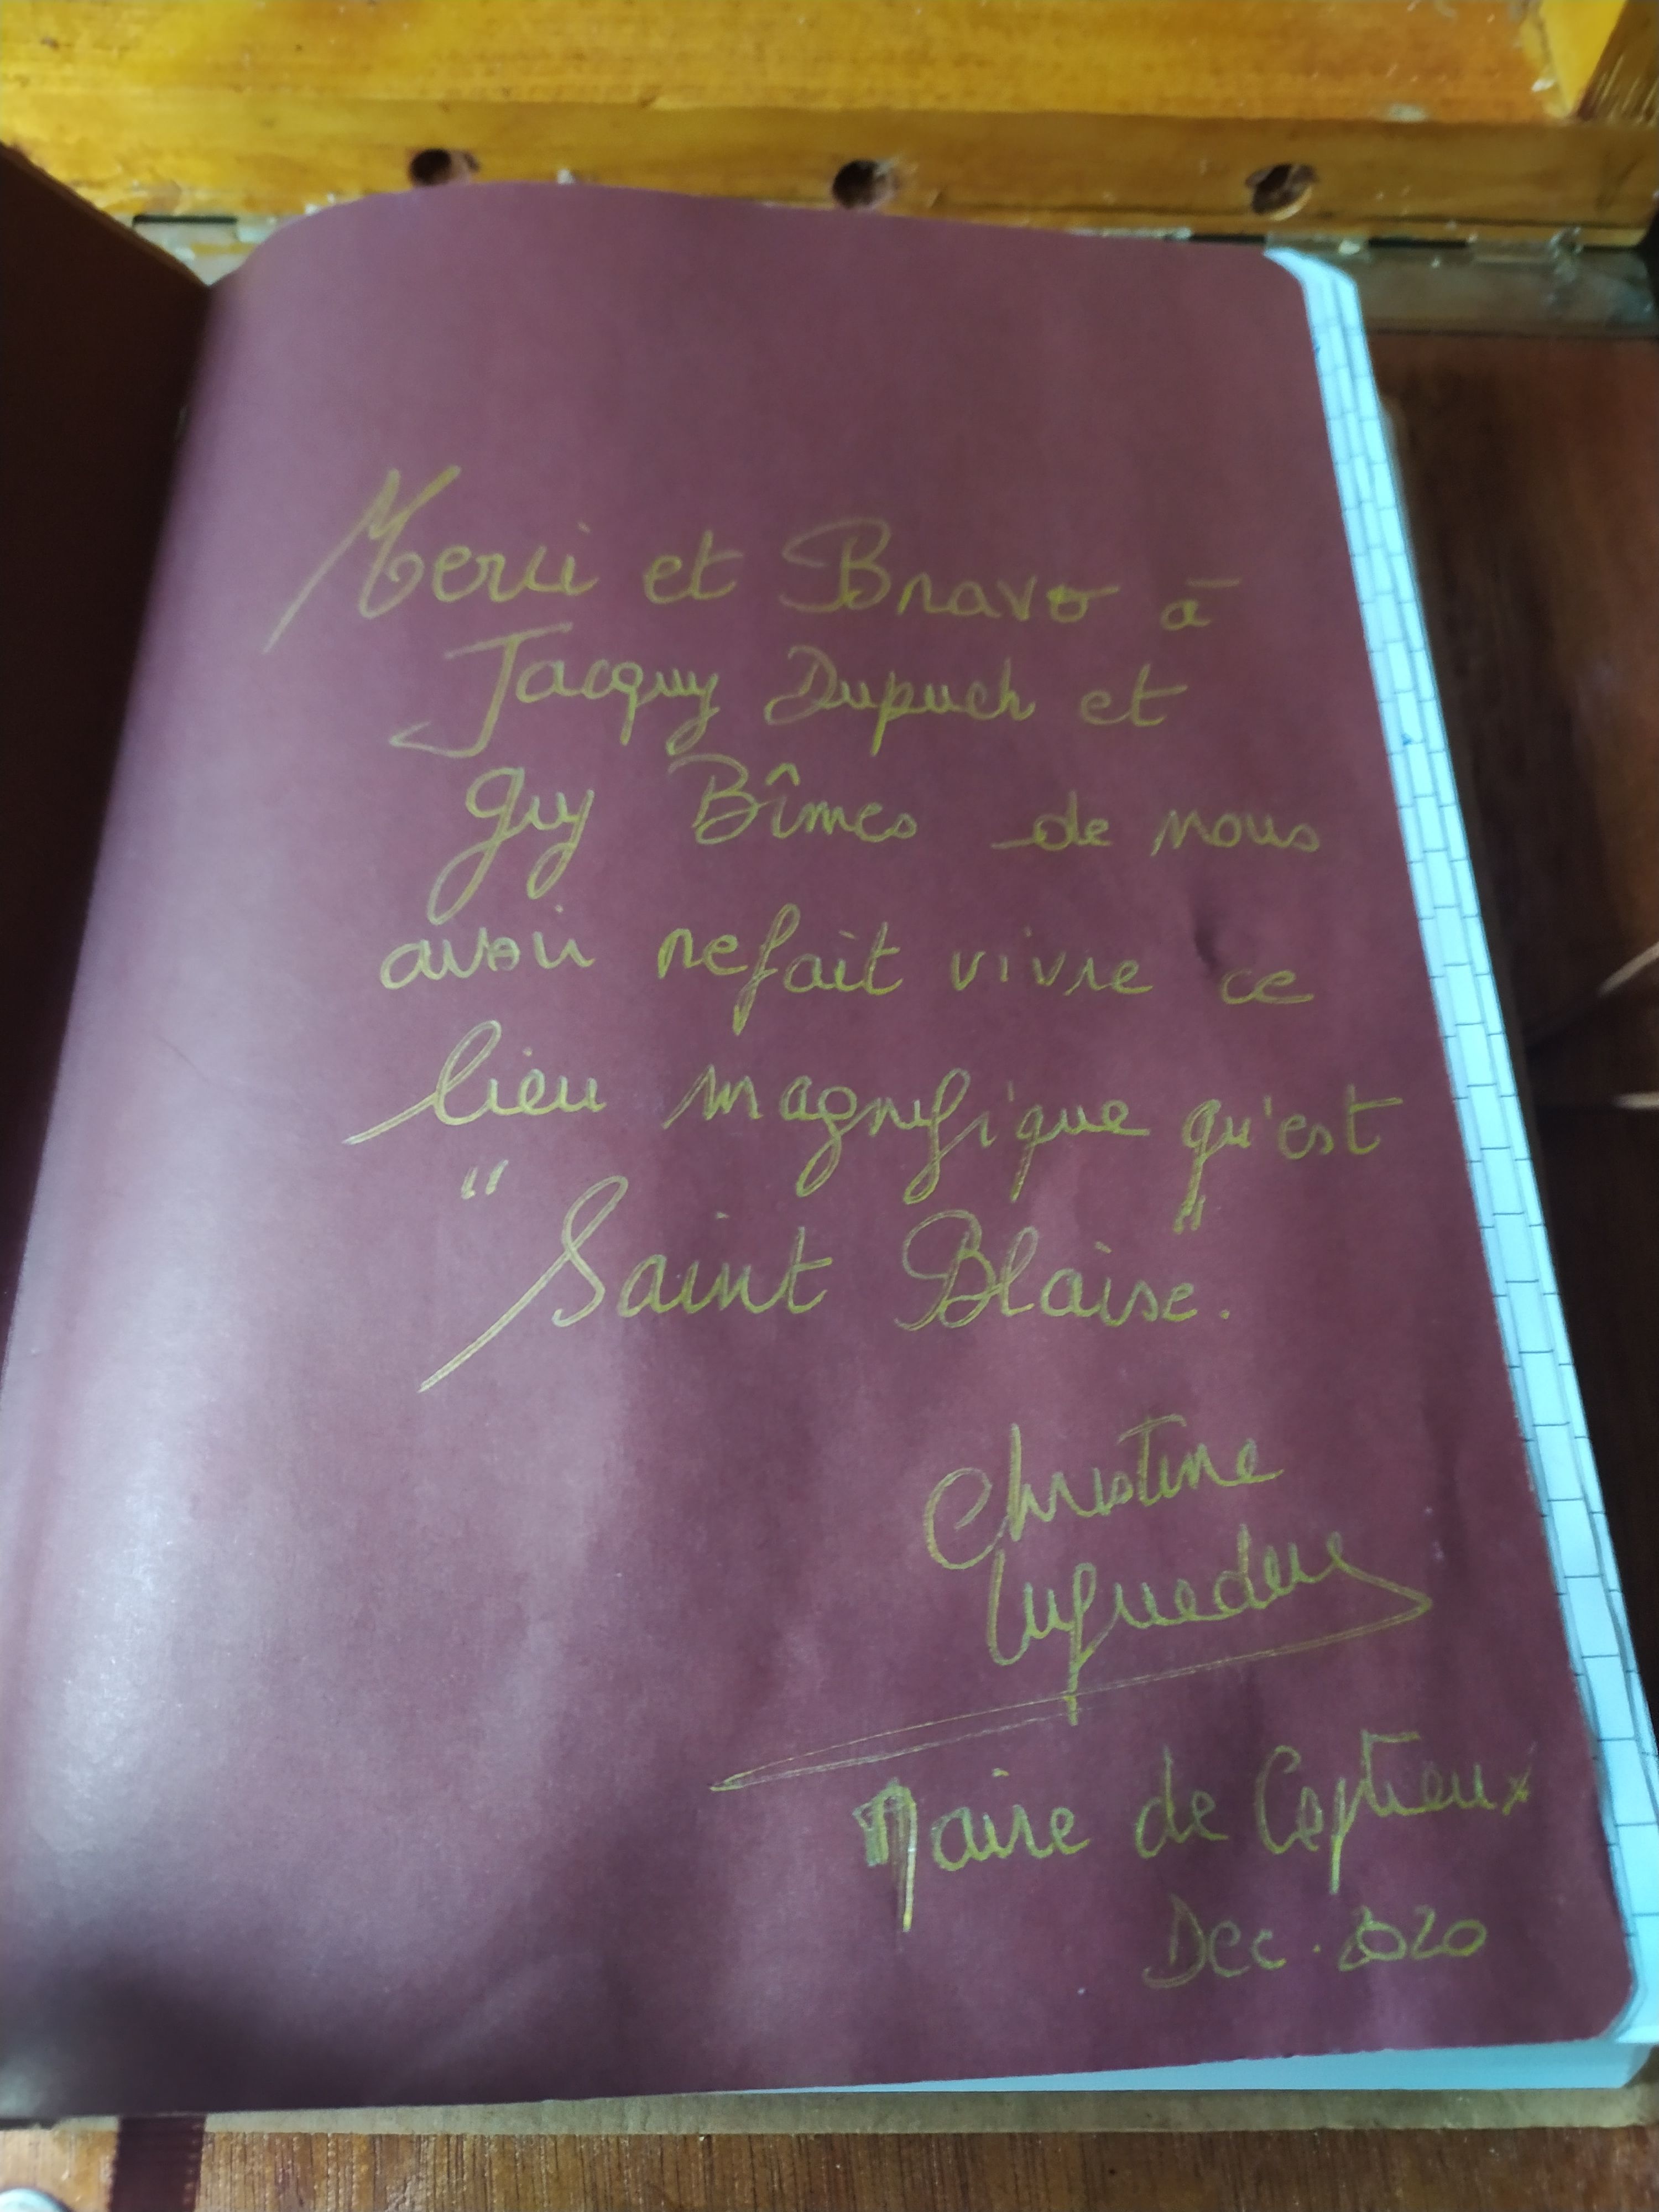 Merci et Bravo à
Jacquy Dupuch et
Guy Bîmes de nous
avoir refait vivre ce
lieu magnifique qu'est
"Saint Blaise".
Christine
Maire de Captieux
Dec. 2020